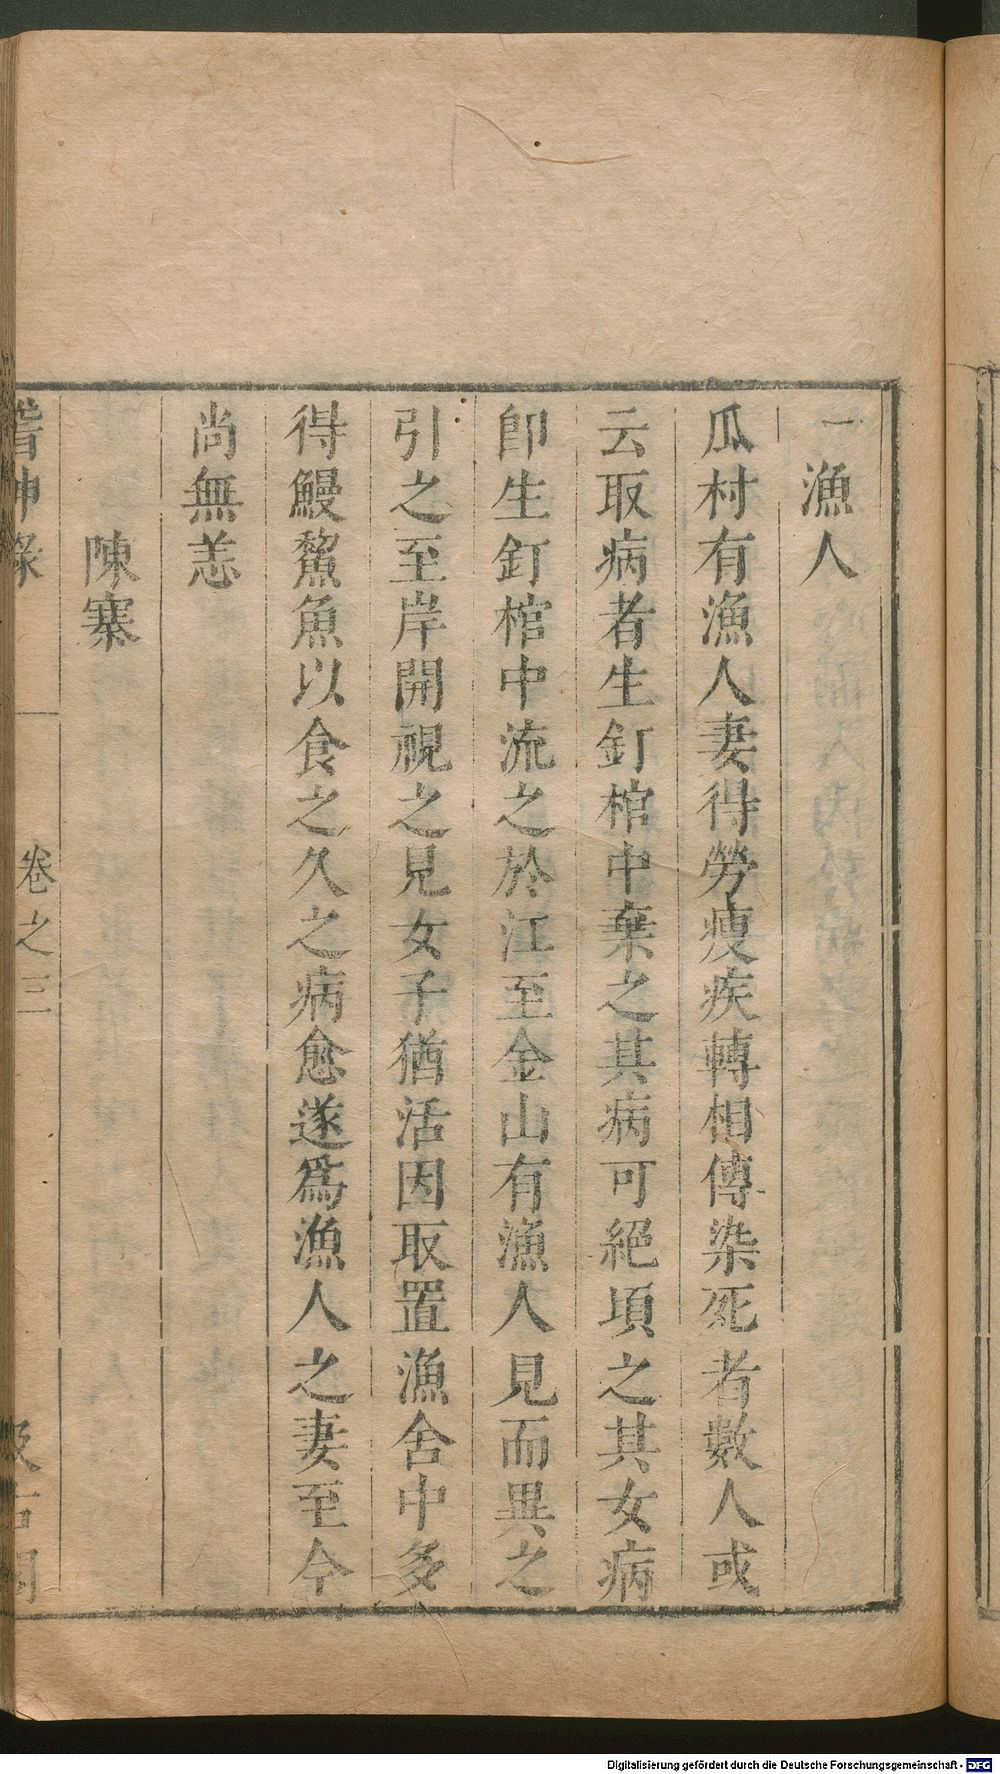 一漁人
瓜村有漁人妻得勞瘦疾轉相傳染死者數人或
云取病者生釘棺中棄之其病可絕項之其女病
卽生釘棺中流之於江至金山有漁人見而異之
引之至岸開視之見女子猶活因取置漁舍中多
得鰻鯬魚以食之久之病愈遂爲漁人之妻至今
尚無恙
陳寨
稽神錄
卷之三
汲古閣
Digitalisierung gefördert durch die Deutsche Forschungsgemeinschaft - DFG